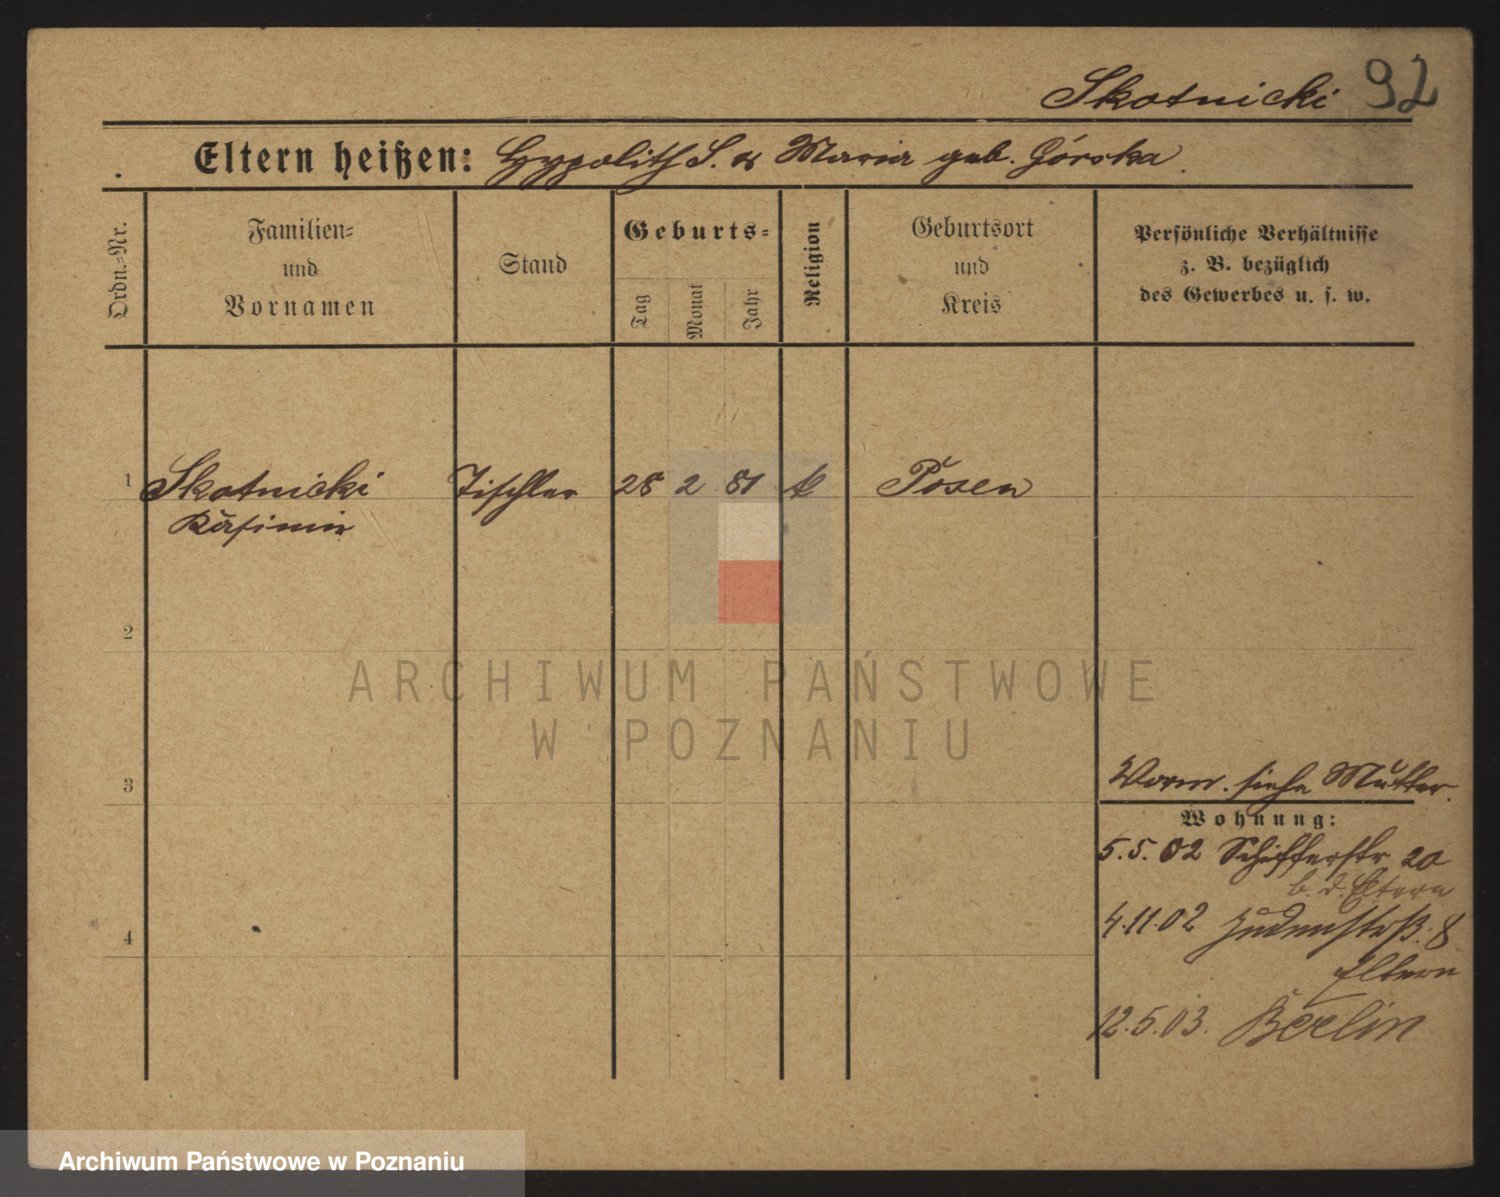 Skotnicki 92
Eltern heißen: Hypolith S. u Maria geb. Górska.
Ordn.-Nr.
Familien-
und
Vornamen
Stand
Geburts-
Tag
Monat
Jahr
Religion
Geburtsort
und
Kreis
Persönliche Verhältnisse
z. B. bezüglich
des Gewerbes u. s. w.
1 Skotnicki Tischler 28 2 81 k Posen
Kasimir
2
ARCHIWUM PAŃSTWOWE
W POZNANIU
3
Vorm. siehe Mutter.
Wohnung:
5.5.02 Schifferstr 20
b. d. Eltern
4
4.11.02 Judenstrß. 8
Eltern
12.5.03. Berlin
Archiwum Państwowe w Poznaniu